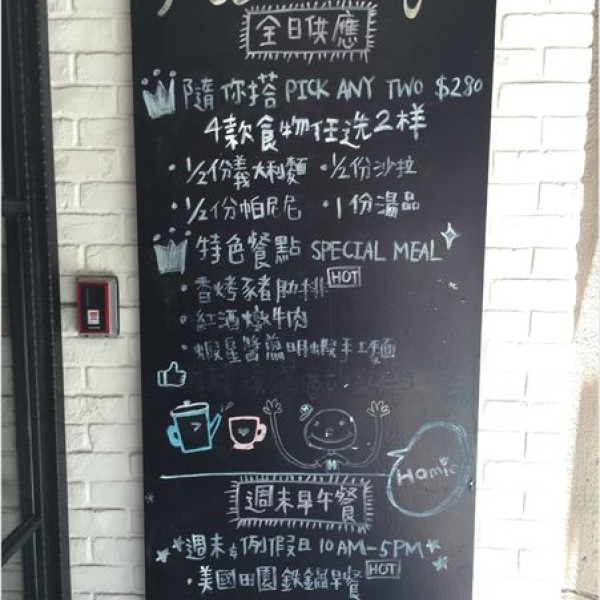 全日供應
隨你搭 PICK ANY TWO $280
4款食物任选2样
·1/2份義大利麵 ·1/2份沙拉
·1/2份帕尼尼 ·1份湯品
特色餐點 SPECIAL MEAL
·香烤豬肋排 HOT
·紅酒燉牛肉
·蝦醬煎明蝦手工麵
Homie
週末早午餐
週末&例假日 10AM-5PM
·美國田園鉄鍋早餐 HOT